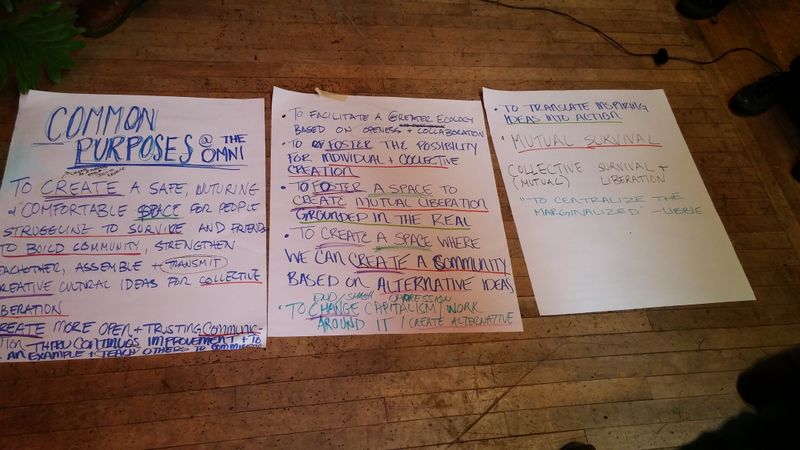 COMMON
PURPOSES @ THE
OMNI
TO CREATE A SAFE, NUTURING
+ COMFORTABLE SPACE FOR PEOPLE
STRUGGLING TO SURVIVE AND FRIENDS
TO BUILD COMMUNITY, STRENGTHEN
EACHOTHER, ASSEMBLE + TRANSMIT
CREATIVE CULTURAL IDEAS FOR COLLECTIVE
LIBERATION
CREATE MORE OPEN + TRUSTING COMMUNIC-
TION THRU CONTINUOS IMPROVEMENT + TO
AN EXAMPLE + TEACH OTHERS TO
• TO FACILITATE A GREATER ECOLOGY
BASED ON OPENESS + COLLABORATION
• TO FOSTER THE POSSIBILITY
FOR INDIVIDUAL + COLLECTIVE
CREATION
• TO FOSTER A SPACE TO
CREATE MUTUAL LIBERATION
GROUNDED IN THE REAL
• TO CREATE A SPACE WHERE
WE CAN CREATE A COMMUNITY
BASED ON ALTERNATIVE IDEAS
END/SMASH OPPRESSION
• TO CHANGE CAPITALISM/WORK
AROUND IT / CREATE ALTERNATIVE
• TO TRANSLATE INSPIRING
IDEAS INTO ACTION
• MUTUAL SURVIVAL
COLLECTIVE SURVIVAL +
(MUTUAL) LIBERATION
"TO CENTRALIZE THE
MARGINALIZED" -LIBBIE